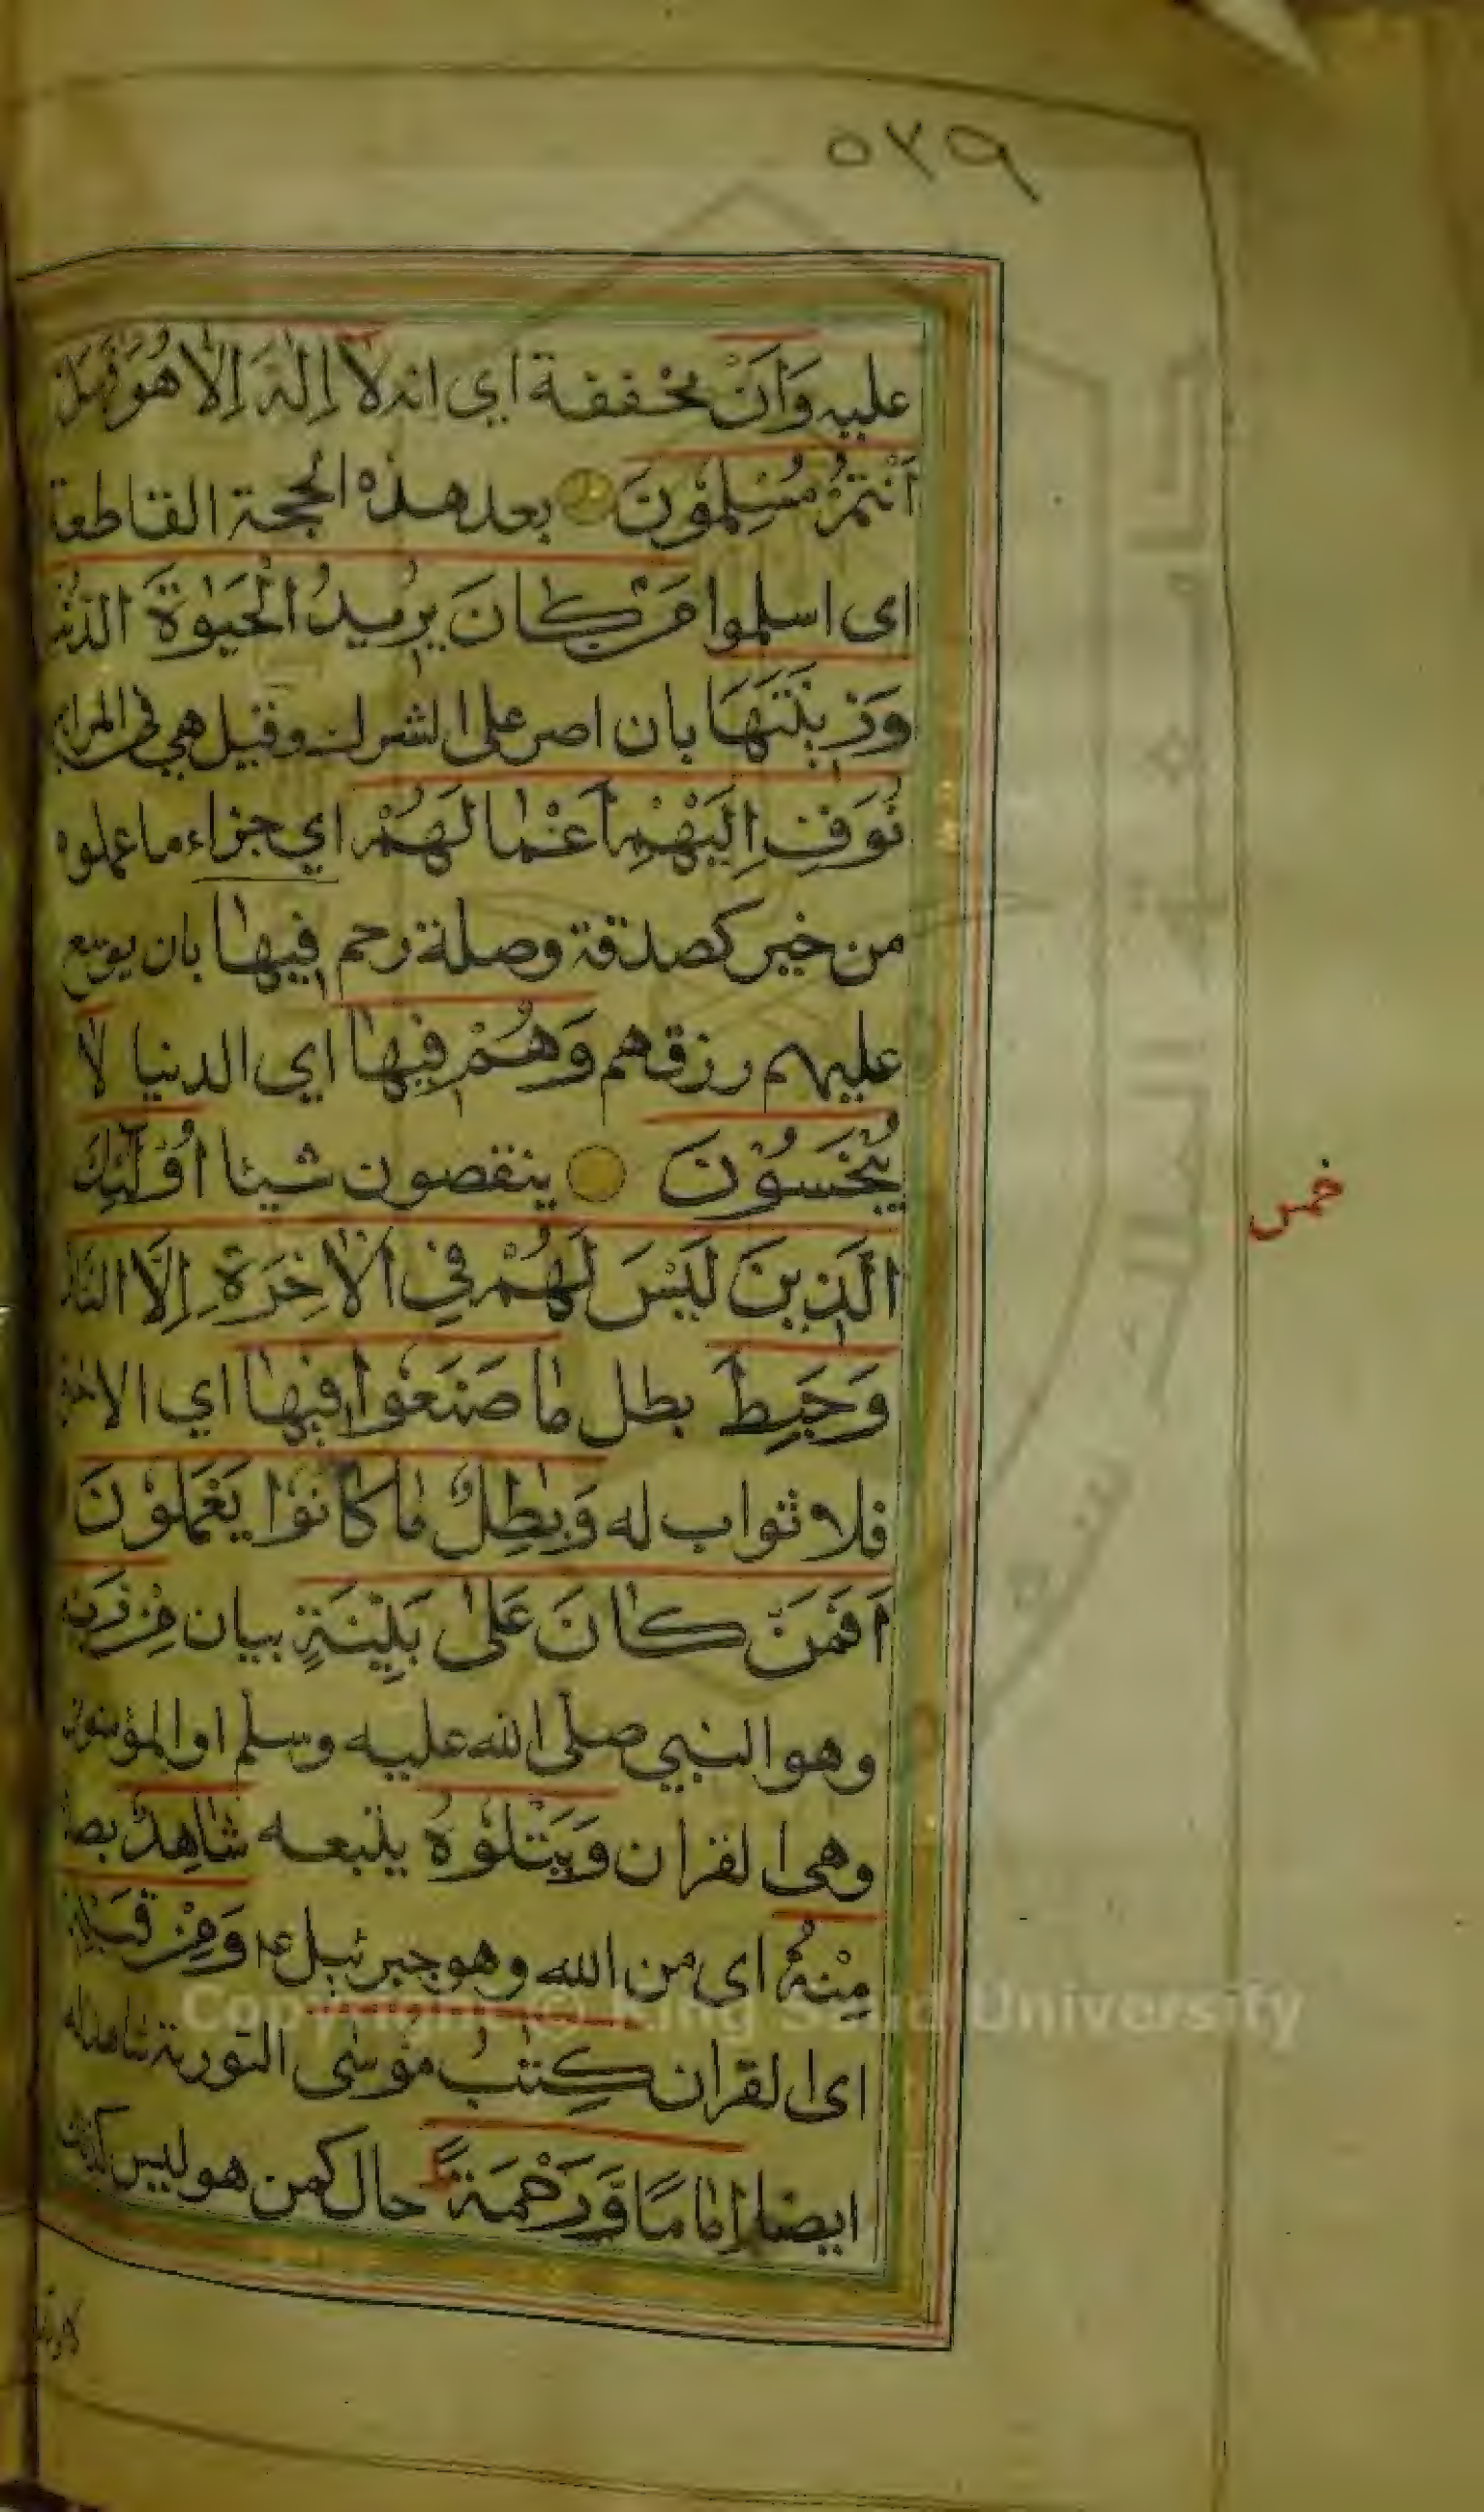 ٥٢٩
عليه وَاَنْ مخففة اي انه لَا اِلٰهَ اِلَّا هُوَ فَهَلْ
اَنْتُمْ مُسْلِمُوْنَ بعد هذه الحجة القاطعة
اى اسلموا مَنْ كَانَ يُرِيدُ الْحَيٰوةَ الدُّنْيَا
وَزِيْنَتَهَا بان اصر على الشرك وقيل هي فى المرائين
نُوَفِّ اِلَيْهِمْ اَعْمَالَهُمْ اي جزاء ما عملوه
من خير كصدقة وصلة رحم فِيهَا بان يوسع
عليهم رزقهم وَهُمْ فِيهَا اي الدنيا لَا
يُبْخَسُوْنَ ينقصون شيئا اُولٰئِكَ
الَّذِينَ لَيْسَ لَهُمْ فِي الْاٰخِرَةِ اِلَّا النَّارُ
وَحَبِطَ بطل مَا صَنَعُوا فِيْهَا اي الاخرة
فلا ثواب له وَبٰطِلٌ مَا كَانُوْا يَعْمَلُوْنَ
اَفَمَنْ كَانَ عَلٰى بَيِّنَةٍ بيان مِنْ رَبِّهِ
وهو النبي صلى الله عليه وسلم او المؤمنون
وهى القران وَيَتْلُوْهُ يتبعه شَاهِدٌ
مِنْهُ اى من الله وهو جبرئيل ع م وَمِنْ قَبْلِهِ
اى القران كِتٰبُ مُوْسٰى التورية شاهد له
ايضا اِمَامًا وَّرَحْمَةً حال كمن هو ليس كذلك
خمس
Copyright © King Saud University
جامعة الملك سعود